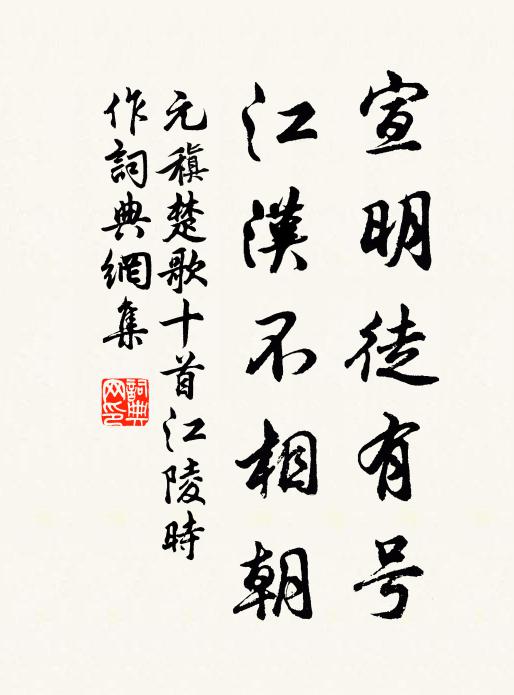 宣明徒有号
江漢不相朝
元稹楚歌十首江陵時
作詞典網集
詞典网印